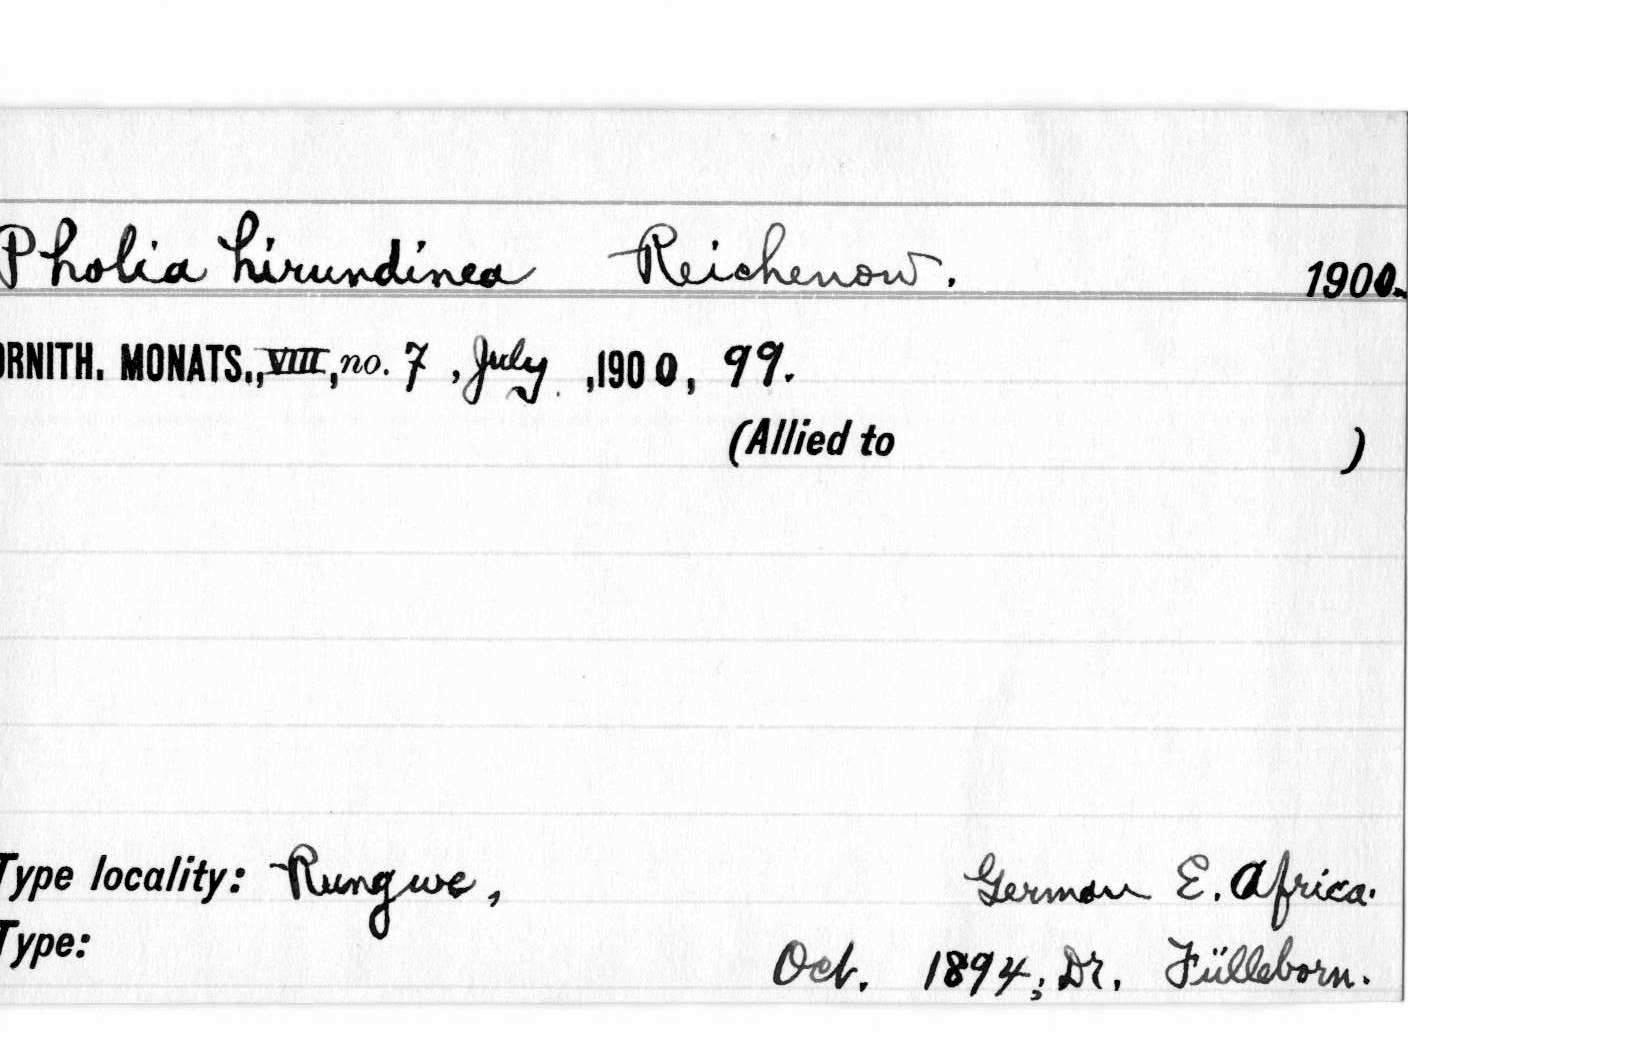 Pholia hirundinea Reichenow. 1900.
ORNITH. MONATS., VIII, no. 7, July, 1900, 99.
(Allied to )
Type locality: Rungwe, German E. Africa.
Type: Oct. 1894; Dr. Fülleborn.